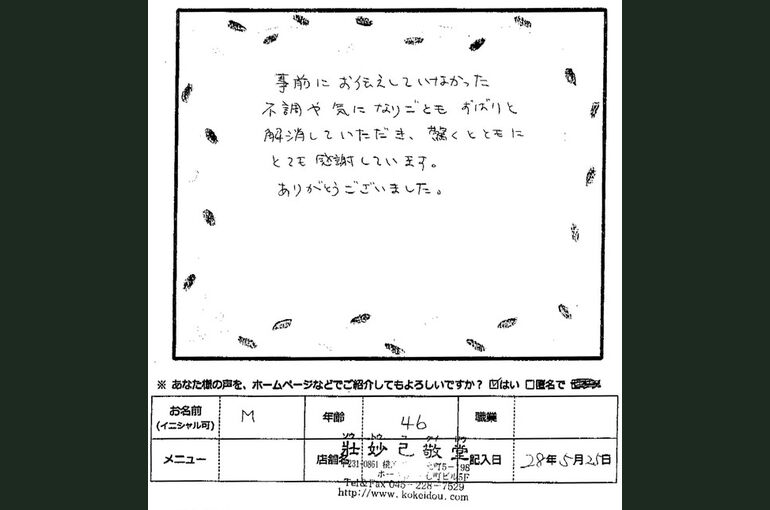 事前に お伝えしていなかった
不調や 気に なりごとも ずばりと
解消していただき、驚くとともに
とても 感謝しています。
ありがとうございました。
※ あなた様の声を、ホームページなどでご紹介してもよろしいですか？ ☑はい □匿名で
お名前 (イニシャル可) M 年齢 46 職業
メニュー 店舗名 記入日 28年5月25日
ソウ トウ コ ケイ ドウ
壯妙己敬堂
〒231-0861 横 元町5-198
ホー 元町ビル5F
Tel&Fax 045-228-7529
http://www.kokeidou.com